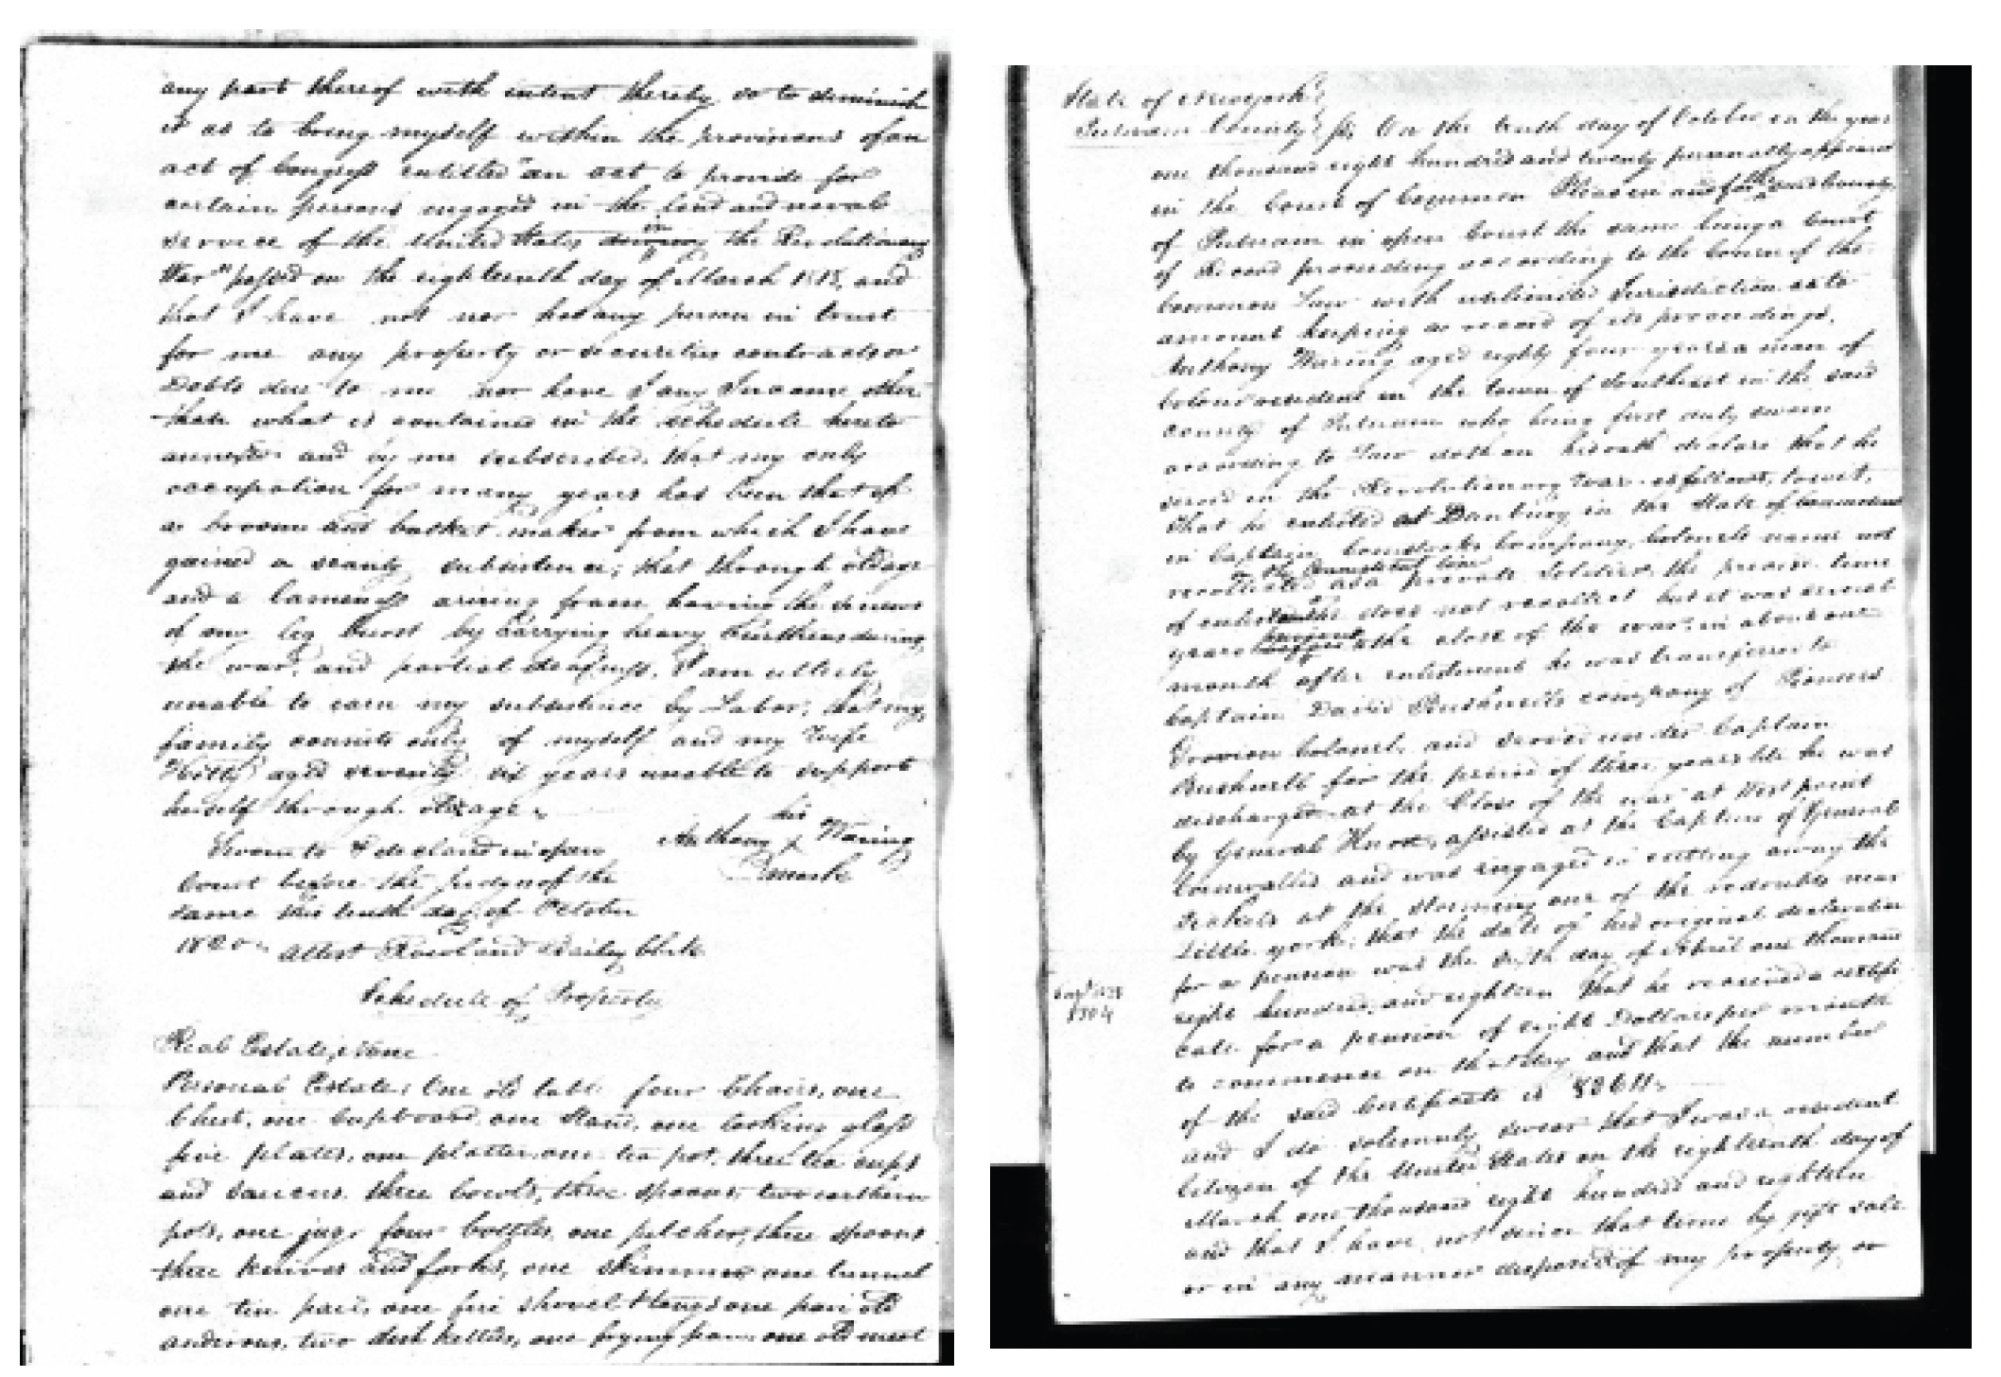 any part thereof with intent thereby so to diminish
it as to bring myself within the provisions of an
act of Congress entitled "an act to provide for
certain persons engaged in the land and naval
service of the United States in the Revolutionary
War" passed on the eighteenth day of March 1818, and
that I have not nor has any person in trust
for me any property or securities contracts or
Debts due to me nor have I any Income other
than what is contained in the schedule hereto
annexed and by me subscribed. that my only
occupation for many years has been that of
a broome and basket maker from which I have
gained a scanty subsistence; that through old age
and a lameness arising from having the sinews
of my leg burst by carrying heavy burthens during
the war, and partial deafness, I am utterly
unable to earn my subsistence by Labor; that my
family consists only of myself and my Wife
aged seventy six years unable to support
herself through old age.
Sworn to & declared in open
Court before the Judges of the
same this tenth day of October
1820.
his
Anthony x Waring
mark
Attest Rowland Bailey Clerk
Schedule of Property
Real Estate, None
Personal Estate, One old table four Chairs, one
Chest, one Cupboard one Stand, one looking glass
five plates, one platter one tea pot, three tea cups
and saucers three bowls, three spoons, two earthern
pots, one jug, four bottles one pitcher, three spoons
three knives and forks, one skimmer one tunnel
one tin pail, one fire shovel & tongs one pair old
andirons, two dish kettles, one frying pan one old meat
State of Newyork
Putnam County ss. On the tenth day of October in the year
one thousand eight hundred and twenty personally appeared
in the Court of Common Pleas in and for the said County
of Putnam in open Court the same being a Court
of Record proceeding according to the Course of the
Common Law with unlimited Jurisdiction as to
amount keeping a record of its proceedings,
Anthony Waring aged eighty four years a man of
Colour resident in the town of Southeast in the said
County of Putnam who being first duly sworn
according to Law doth on his oath declare that he
served in the Revolutionary War as follows, towit,
that he enlisted at Danbury in the State of Connecticut
in Captain Comstocks Company, Colonels name not
recollected the Connecticut line as a private Soldier, the precise time
of enlistment he does not recollect but it was several
years the close of the war: in about one
month after enlistment he was transferred to
Captain David Bushnells company of Pioneers
Colonel, and served under Captain
Bushnell for the period of three years till he was
discharged at the Close of the war at West point
by General Knox, assisted at the Capture of General
Cornwallis and was engaged in cutting away the
at the storming one of the redoubts near
Little york; that the date of his original declaration
for a pension was the day of April one thousand
eight hundred and eighteen that he received a certifi
cate for a pension of eight Dollars per month
to commence on that day and that the number
of the said Certificate is
and I do solemnly swear that I was a resident
Citizen of the United States on the eighteenth day of
March one thousand eight hundred and eighteen
and that I have not since that time by gift sale
or in any manner disposed of my property or